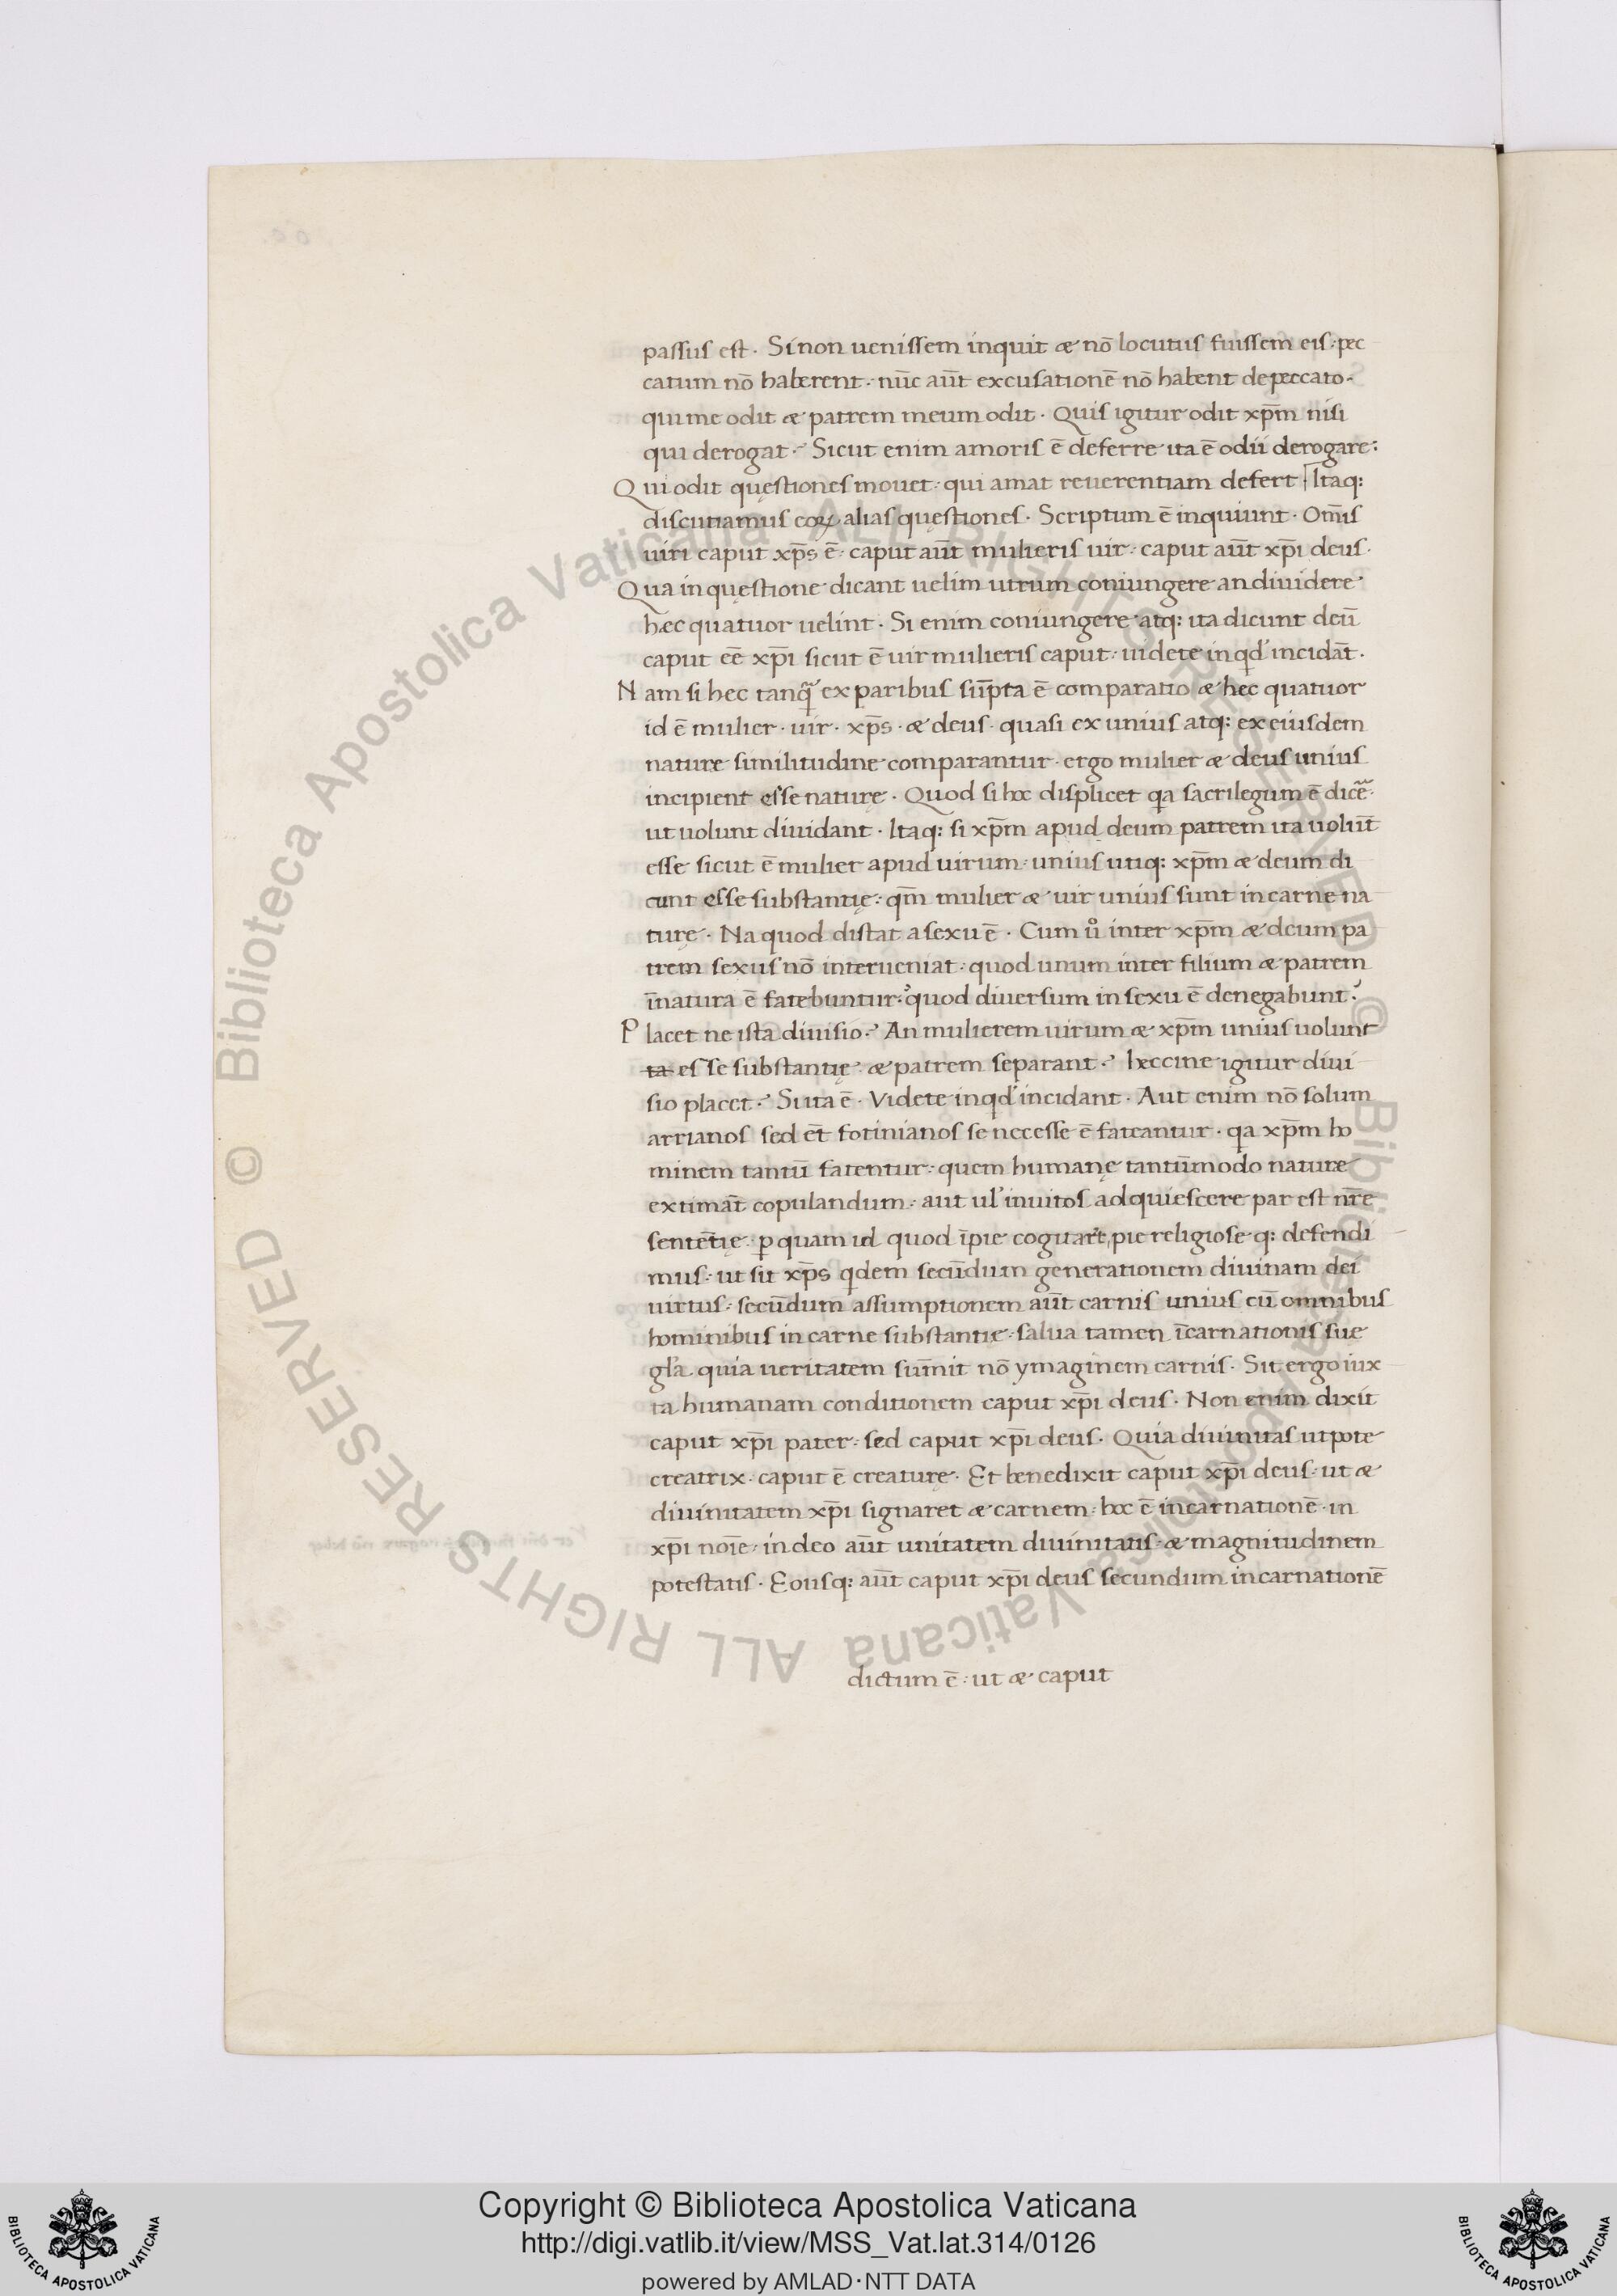 passus est · Si non uenissem inquit æ nō locutus fuissem eis : pec
catum nō haberent : nūc aūt excusationē nō habent de peccato ·
qui me odit æ patrem meum odit · Quis igitur odit xp̄m nisi
qui derogat ·’ Sicut enim amoris ē deferre ita ē odii derogare :
Qui odit quęstiones mouet : qui amat reuerentiam defert · Itaq:
discutiamus eoꝝ alias quęstiones · Scriptum ē inquiunt · Om̄is
uiri caput xp̄s ē : caput aūt mulieris uir : caput aūt xp̄i deus ·
Qua in quęstione dicant uelim utrum coniungere an diuidere
hæc quatuor uelint · Si enim coniungere atq: ita dicunt deū
caput eē xp̄i sicut ē uir mulieris caput : uidete in qd’ incidāt ·
Nam si hec tanq̄ ex paribus sūpta ē comparatio æ hęc quatuor
id ē mulier · uir · xp̄s · æ deus · quasi ex unius atq: ex eiusdem
nature similitudine comparantur · ergo mulier æ deus unius
incipient esse naturę · Quod si hoc displicet qa sacrilegum ē dicē ·
ut uolunt diuidant · Itaq: si xp̄m apud deum patrem ita uolūt
esse sicut ē mulier apud uirum : unius utiq: xp̄m æ deum di
cunt esse substantię : qm̄ mulier æ uir unius sunt in carne na
turę · Na quod distat a sexu ē · Cum uͦ inter xp̄m æ deum pa
trem sexus nō interueniat : quod unum inter filium æ patrem
īnatura ē fatebuntur : quod diuersum in sexu ē denegabunt ·’
Placet ne ista diuisio ·’ An mulierem uirum æ xp̄m unius uolunt
ta esse substantię · æ patrem separant ·’ heccine igitur diui
sio placet ·’ Si ita ē · Videte in qd’ incidant · Aut enim nō solum
arrianos sed et̄ fotinianos se necesse ē fateantur · qa xp̄m ho
minem tantū fatentur : quem humanę tantūmodo nature
extimāt copulandum : aut ul’ inuitos adquiescere par est nr̄e
sentētię · ꝑ quam id quod īpie cogitart, pie religiose q: defendi
mus : ut sit xp̄s qdem secūdum generationem diuinam dei
uirtus : secūdum assumptionem aūt carnis unius cū omnibus
hominibus in carne substantię · salua tamen īcarnationis sue
gl’a quia ueritatem sūmit nō ymaginem carnis · Sit ergo iux
ta humanam conditionem caput xp̄i deus · Non enim dixit
caput xp̄i pater : sed caput xp̄i deus · Quia diuinitas utpote
creatrix · caput ē creaturę · Et bene dixit caput xp̄i deus : ut æ
diuinitatem xp̄i signaret æ carnem : hoc ē incarnationē · in
xp̄i noīe : in deo aūt unitatem diuinitatis · æ magnitudinem
potestatis · Eousq: aūt caput xp̄i deus secundum incarnationē
dictum ē : ut æ caput
© Biblioteca Apostolica Vaticana ALL RIGHTS RESERVED © Biblioteca Apostolica Vaticana ALL RIGHTS RESERVED
Copyright © Biblioteca Apostolica Vaticana
http://digi.vatlib.it/view/MSS_Vat.lat.314/0126
powered by AMLAD·NTT DATA
BIBLIOTECA APOSTOLICA VATICANA
BIBLIOTECA APOSTOLICA VATICANA